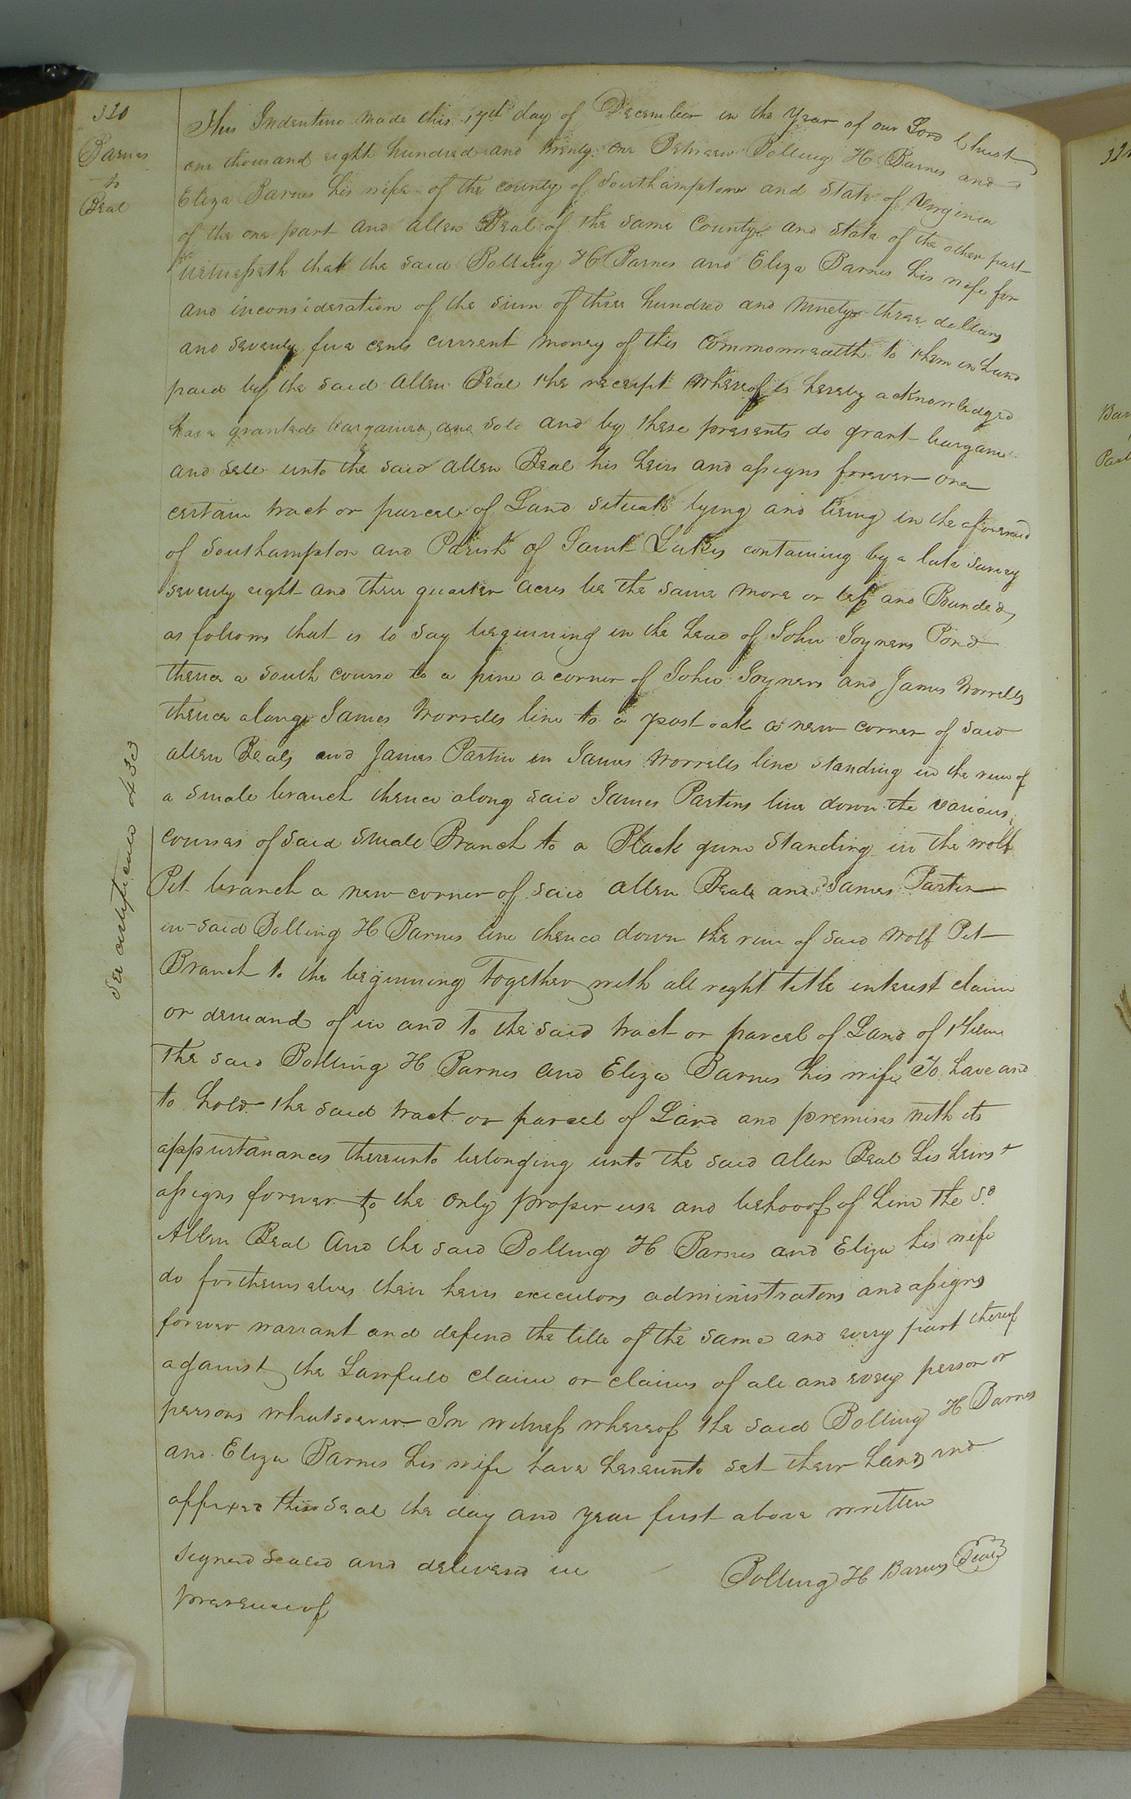 320
Barnes
to
Beal
This Indenture made this 17th day of December in the Year of our Lord Christ
one thousand eight hundred and twenty one Between Bolling H Barnes and
Eliza Barnes his wife of the county of Southampton and State of Virginia
of the one part and Allen Beal of the same County and State of the other part
Witnesseth that the said Bolling H Barnes and Eliza Barnes his wife for
and inconsideration of the sum of three hundred and ninety three dollars
and seventy five cents current money of this commonwealth to them in hand
paid by the said Allen Beal the receipt whereof is hereby acknowledged
have granted bargained and sold and by these presents do grant bargain
and sell unto the said Allen Beal his heirs and assigns forever one
certain tract or parcel of Land situate lying and being in the aforesaid
of Southampton and Parish of Saint Lukes containing by a late survey
seventy eight and three quarter acres be the same more or less and Bunded
as follows that is to say beginning in the head of John Joyners Pond
thence a south course to a pine a corner of John Joyners and James Worrells
thence along James Worrells line to a post oak a new corner of said
Allen Beals and James Partin in James Worrells line standing in the run of
a small branch thence along said James Partins line down the various
courses of said small Branch to a Black gum standing in the wolf
Pit branch a new corner of said Allen Beals and James Partin
in said Bolling H Barnes line thence down the run of said Wolf Pit
Branch to the beginning Together with all right title interest claim
or demand of in and to the said tract or parcel of Land of them
the said Bolling H Barnes and Eliza Barnes his wife To have and
to hold the said tract or parcel of Land and premises with its
appurtanances thereunto belonging unto the said Allen Beal his heirs &
assigns forever to the only proper use and behoof of him the Sd
Allen Beal And the said Bolling H Barnes and Eliza his wife
do for themselves their heirs executors administrators and assigns
forever warrant and defend the title of the same and every part thereof
against the Lawfull claim or claims of all and every person or
persons whatsoever In witness whereof the said Bolling H Barnes
and Eliza Barnes his wife have hereunto set their hands and
affixed their seal the day and year first above written
Signed sealed and delivered in
presence of
Bolling H Barnes Seal
See certificates 433